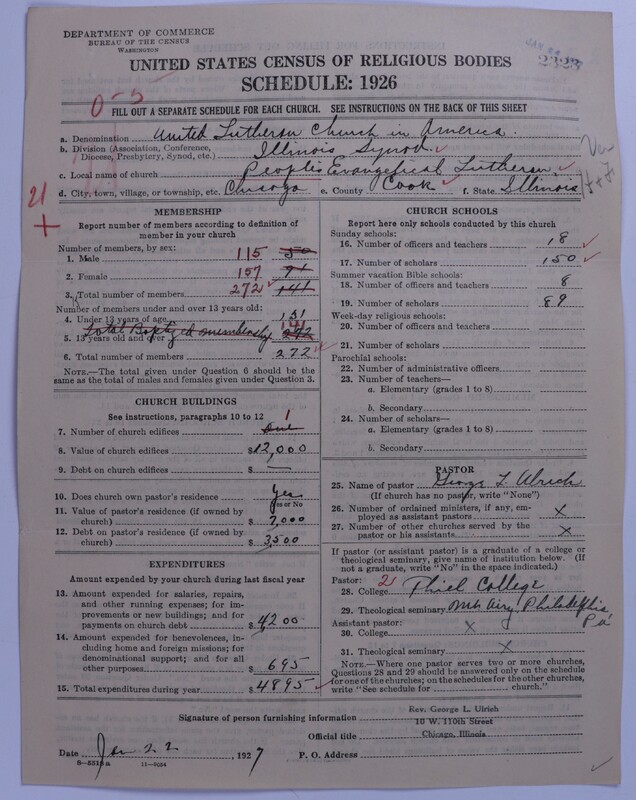 DEPARTMENT OF COMMERCE
BUREAU OF THE CENSUS
WASHINGTON
JAN 24
2323
UNITED STATES CENSUS OF RELIGIOUS BODIES
SCHEDULE: 1926
0-5
FILL OUT A SEPARATE SCHEDULE FOR EACH CHURCH. SEE INSTRUCTIONS ON THE BACK OF THIS SHEET
a. Denomination United Lutheran Church in America.
b. Division (Association, Conference, Diocese, Presbytery, Synod, etc.) Illinois Synod.
c. Local name of church Peoples Evangelical Lutheran
d. City, town, village, or township, etc. Chicago e. County Cook f. State Illinois
21
+
MEMBERSHIP
Report number of members according to definition of
member in your church
Number of members, by sex:
1. Male 115 50
2. Female 157 91
3. Total number of members 272 141
Number of members under and over 13 years old:
4. Under 13 years of age 131
Total Baptized membership
5. 13 years old and over 141 272
6. Total number of members 272
NOTE.—The total given under Question 6 should be
the same as the total of males and females given under Question 3.
CHURCH BUILDINGS
See instructions, paragraphs 10 to 12
7. Number of church edifices 1 One
8. Value of church edifices $12,000
9. Debt on church edifices $ —
10. Does church own pastor's residence Yes
Yes or No
11. Value of pastor's residence (if owned by
church) $ 7,000
12. Debt on pastor's residence (if owned by
church) $ 3,500
EXPENDITURES
Amount expended by your church during last fiscal year
13. Amount expended for salaries, repairs,
and other running expenses; for im-
provements or new buildings; and for
payments on church debt $4200
14. Amount expended for benevolences, in-
cluding home and foreign missions; for
denominational support; and for all
other purposes $ 695
15. Total expenditures during year $ 4895
CHURCH SCHOOLS
Report here only schools conducted by this church
Sunday schools:
16. Number of officers and teachers 18
17. Number of scholars 150
Summer vacation Bible schools:
18. Number of officers and teachers 8
19. Number of scholars 89
Week-day religious schools:
20. Number of officers and teachers
21. Number of scholars
Parochial schools:
22. Number of administrative officers
23. Number of teachers—
a. Elementary (grades 1 to 8)
b. Secondary
24. Number of scholars—
a. Elementary (grades 1 to 8)
b. Secondary
PASTOR
25. Name of pastor George L. Ulrich
(If church has no pastor, write "None")
26. Number of ordained ministers, if any, em-
ployed as assistant pastors X
27. Number of other churches served by the
pastor or his assistants X
If pastor (or assistant pastor) is a graduate of a college or
theological seminary, give name of institution below. (If
not a graduate, write "No" in the space indicated.)
Pastor: 2
28. College Thiel College
29. Theological seminary Mt. Airy, Philadelphia
Pa.
Assistant pastor:
30. College X
31. Theological seminary X
NOTE.—Where one pastor serves two or more churches,
Questions 28 and 29 should be answered only on the schedule
for one of the churches; on the schedules for the other churches,
write "See schedule for ............ church."
Signature of person furnishing information Rev. George L. Ulrich
Official title 10 W. 110th Street
Chicago, Illinois
Date Jan 22, 1927 P. O. Address
8—5518 a 11—9034